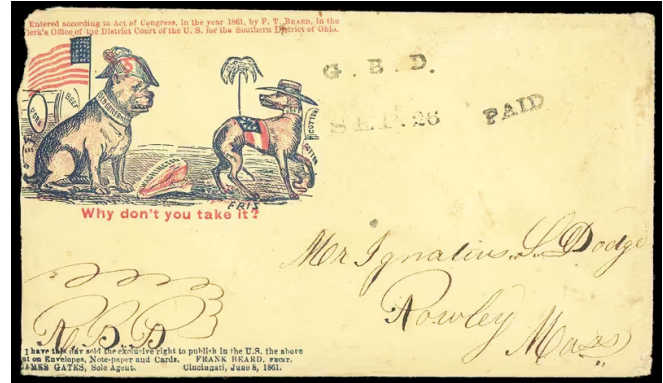 Entered according to Act of Congress, in the year 1861, by F. T. BEARD, in the
lerk's Office of the District Court of the U. S. for the Southern District of Ohio.
G. B. D.
SEP. 26 PAID
PORK
BEEF
COTTON
WASHINGTON
Why don't you take it?
Mr Ignatius. S. Dodge
Rowley
Mass
I have this day sold the exclusive right to publish in the U.S. the above
on Envelopes, Note-paper and Cards. FRANK BEARD,
JAMES GATES, Sole Agent. Cincinnati, June 8, 1861.